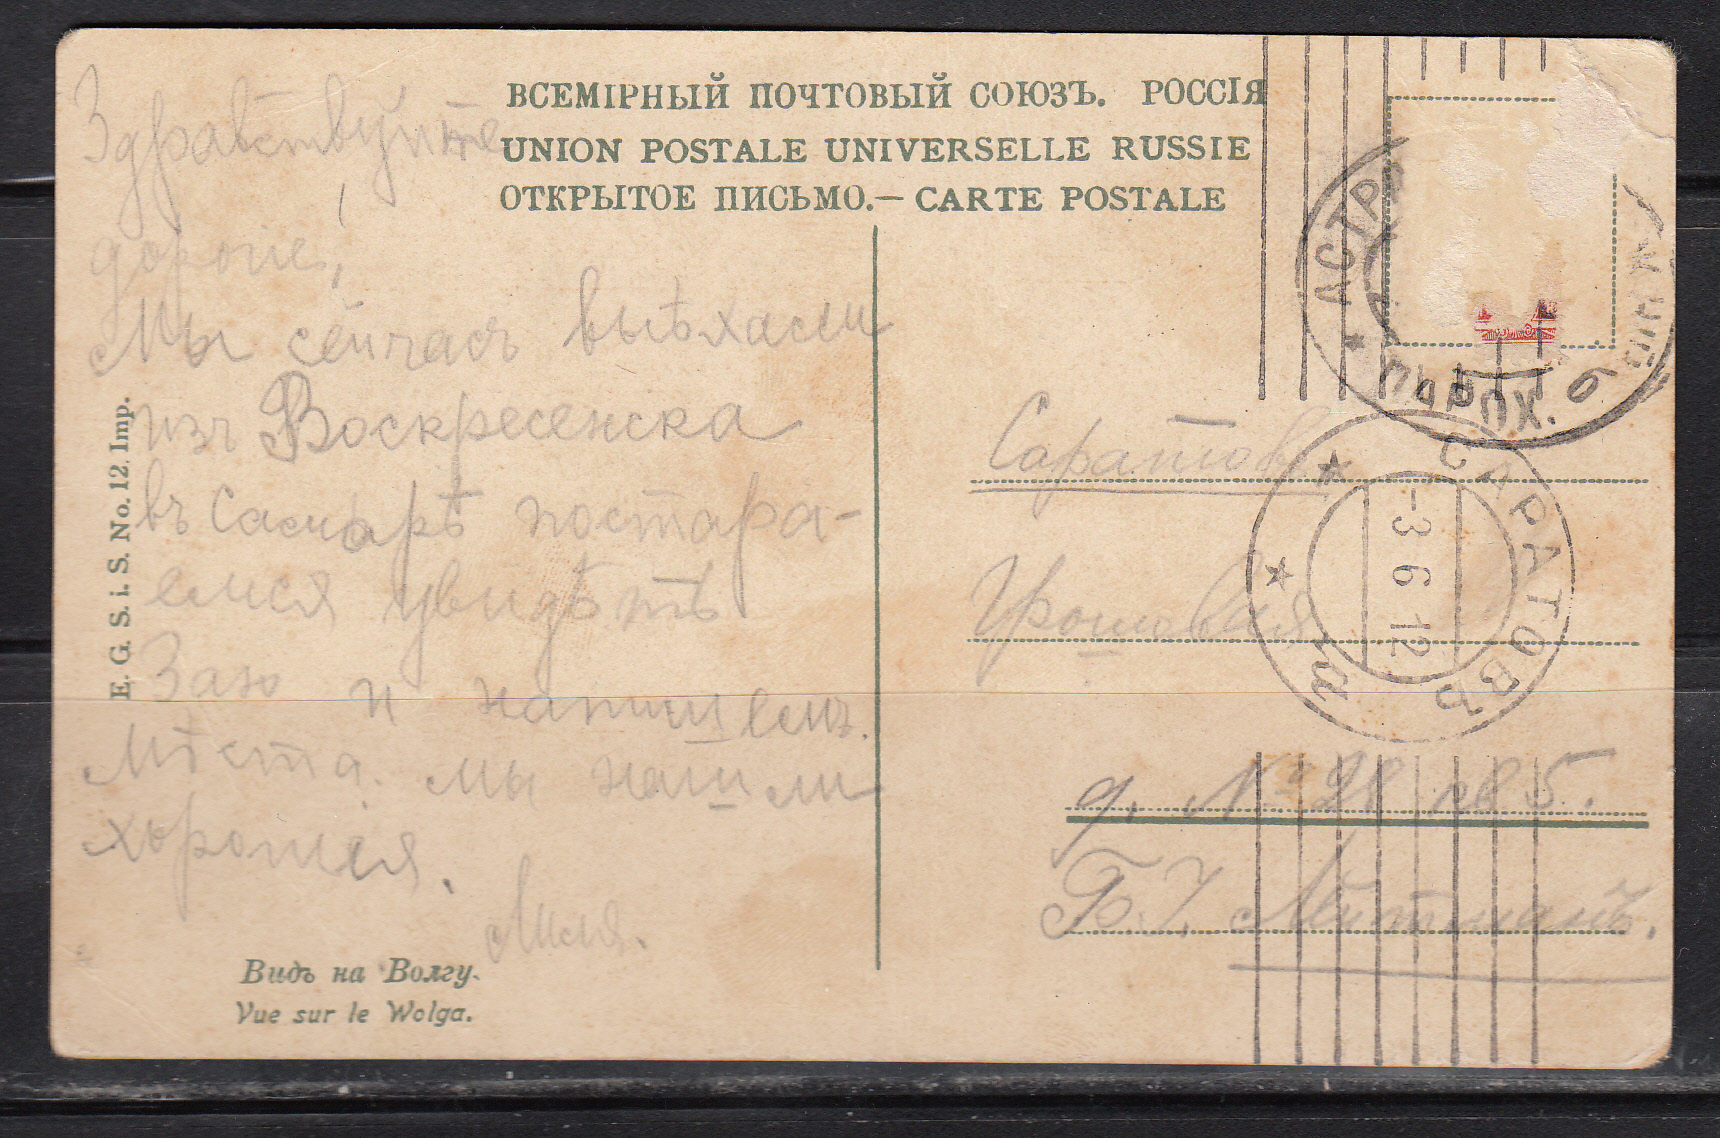 ВСЕМІРНЫЙ ПОЧТОВЫЙ СОЮЗЪ. РОССІЯ
UNION POSTALE UNIVERSELLE RUSSIE
ОТКРЫТОЕ ПИСЬМО.— CARTE POSTALE
Здравствуйте
дорогіе!
Мы сейчасъ выѣхали
изъ Воскресенска
въ Самарѣ постара-
емся увидѣть
Заю и напишемъ.
Мѣста мы нашли
хорошія.
Миля.
Саратовъ
Грошовая
д. № 28 кв 5.
Б. І. Митманъ.
АСТР
ПАРОХ.
6
САРАТОВЪ
-3 6 12
E. G. S. i. S. No. 12. Imp.
Видъ на Волгу.
Vue sur le Wolga.